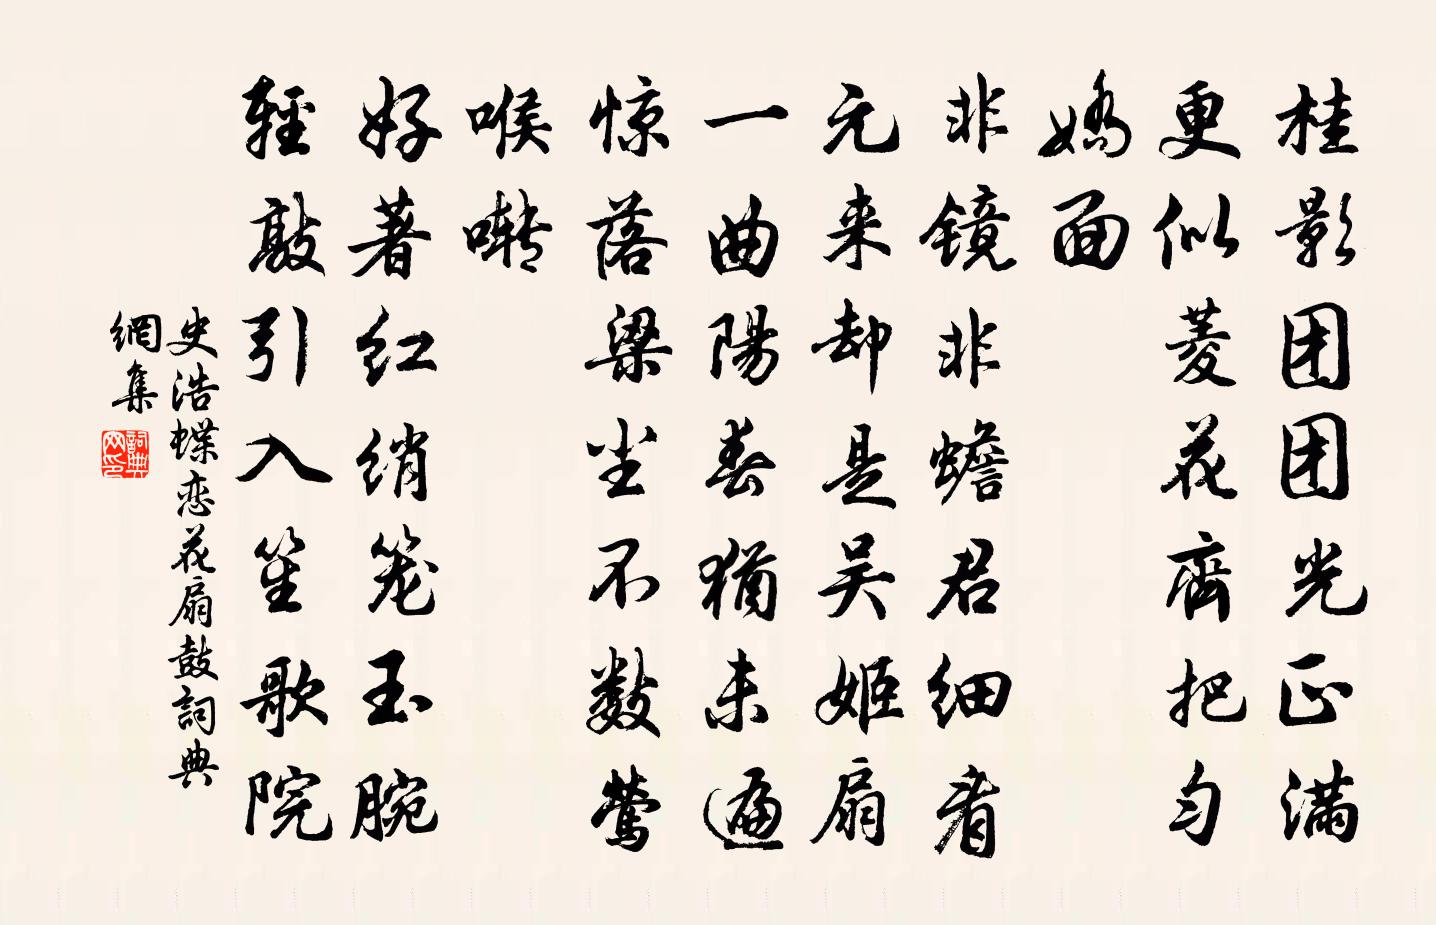 桂影团团光正满
更似菱花齊把匀
嬌面
非镜非蟾君细看
元来却是吴姬扇
一曲陽春犹未遍
惊落梁尘不数莺
喉啭
好著红绡笼玉腕
輕敲引入笙歌院
史浩蝶恋花扇鼓詞典
網集
詞典網印